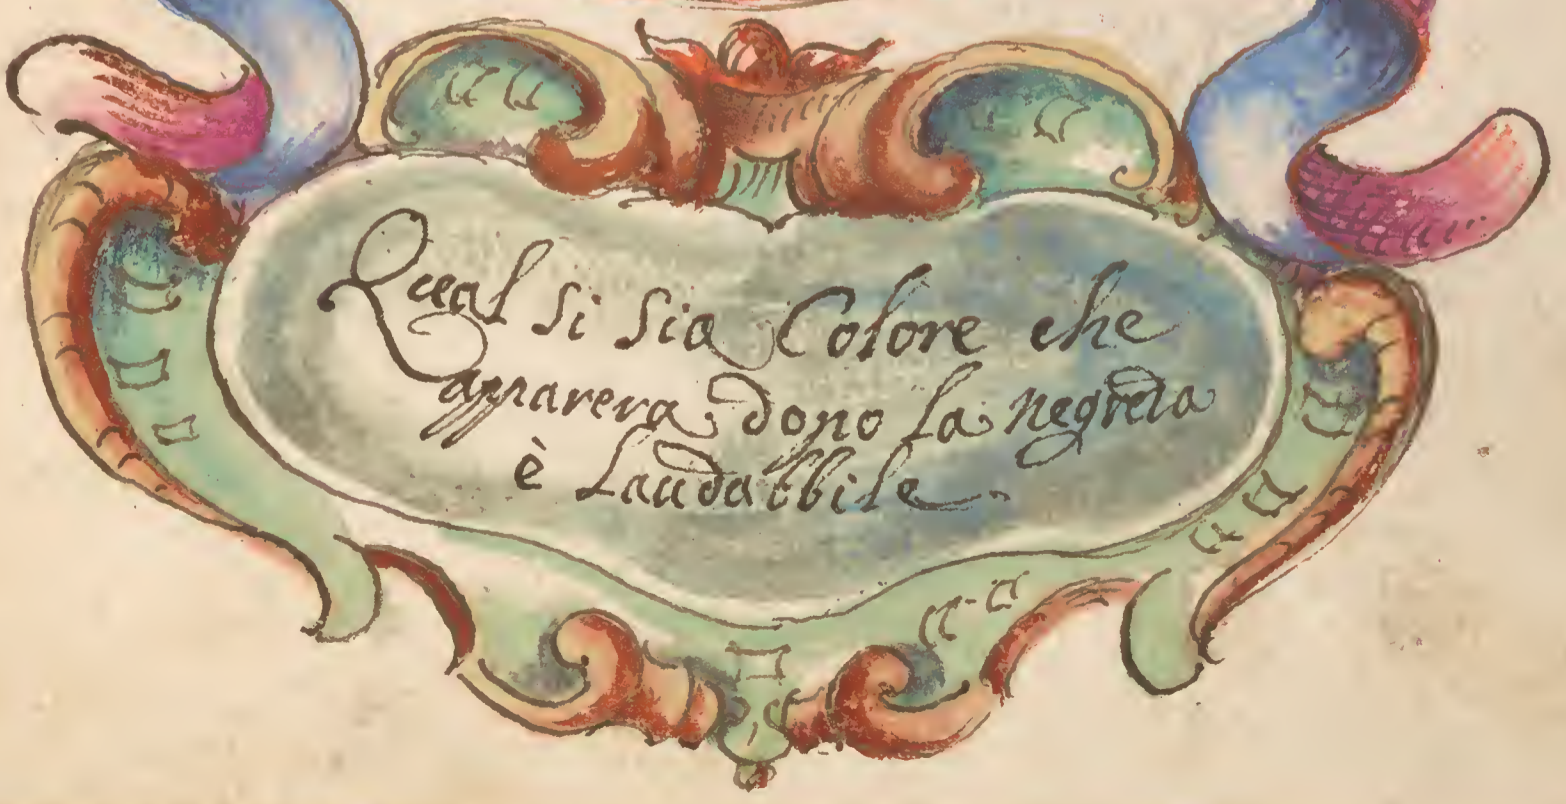 Qual si sia Colore che
apparera dopo la negreza
è laudabbile